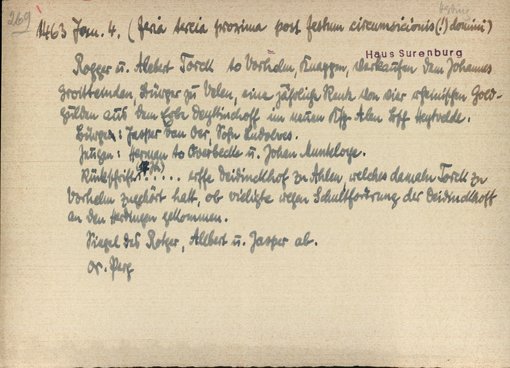 269
1463 Jan. 4. (feria tercia proxima post festum circumcicionis (!) domini)
Haus Surenburg
Rotger u. Albert Torck to Vorhelm, Knappen, verkaufen dem Johannes
Grotten, Bürger zu Velen, eine jährliche Rente von vier rhemischen Gold-
gulden aus dem Erbe im neuen Ksp. Alen Bssch.
Bürgen: Jasper van Oer, Sohn Ludolves.
Zeugen: Herman to Overbeck u. Johan
Rückschrift: .... erffe Deidinckhof zu Ahlen, welches damaln Torck zu
Vorhelm zugehört hatt, ob vielligte wegen Schultforderung der Deidinckhoff
an den Herdingen gekommen.
Siegel des Rotger, Albert u. Jasper ab.
Or. Perg